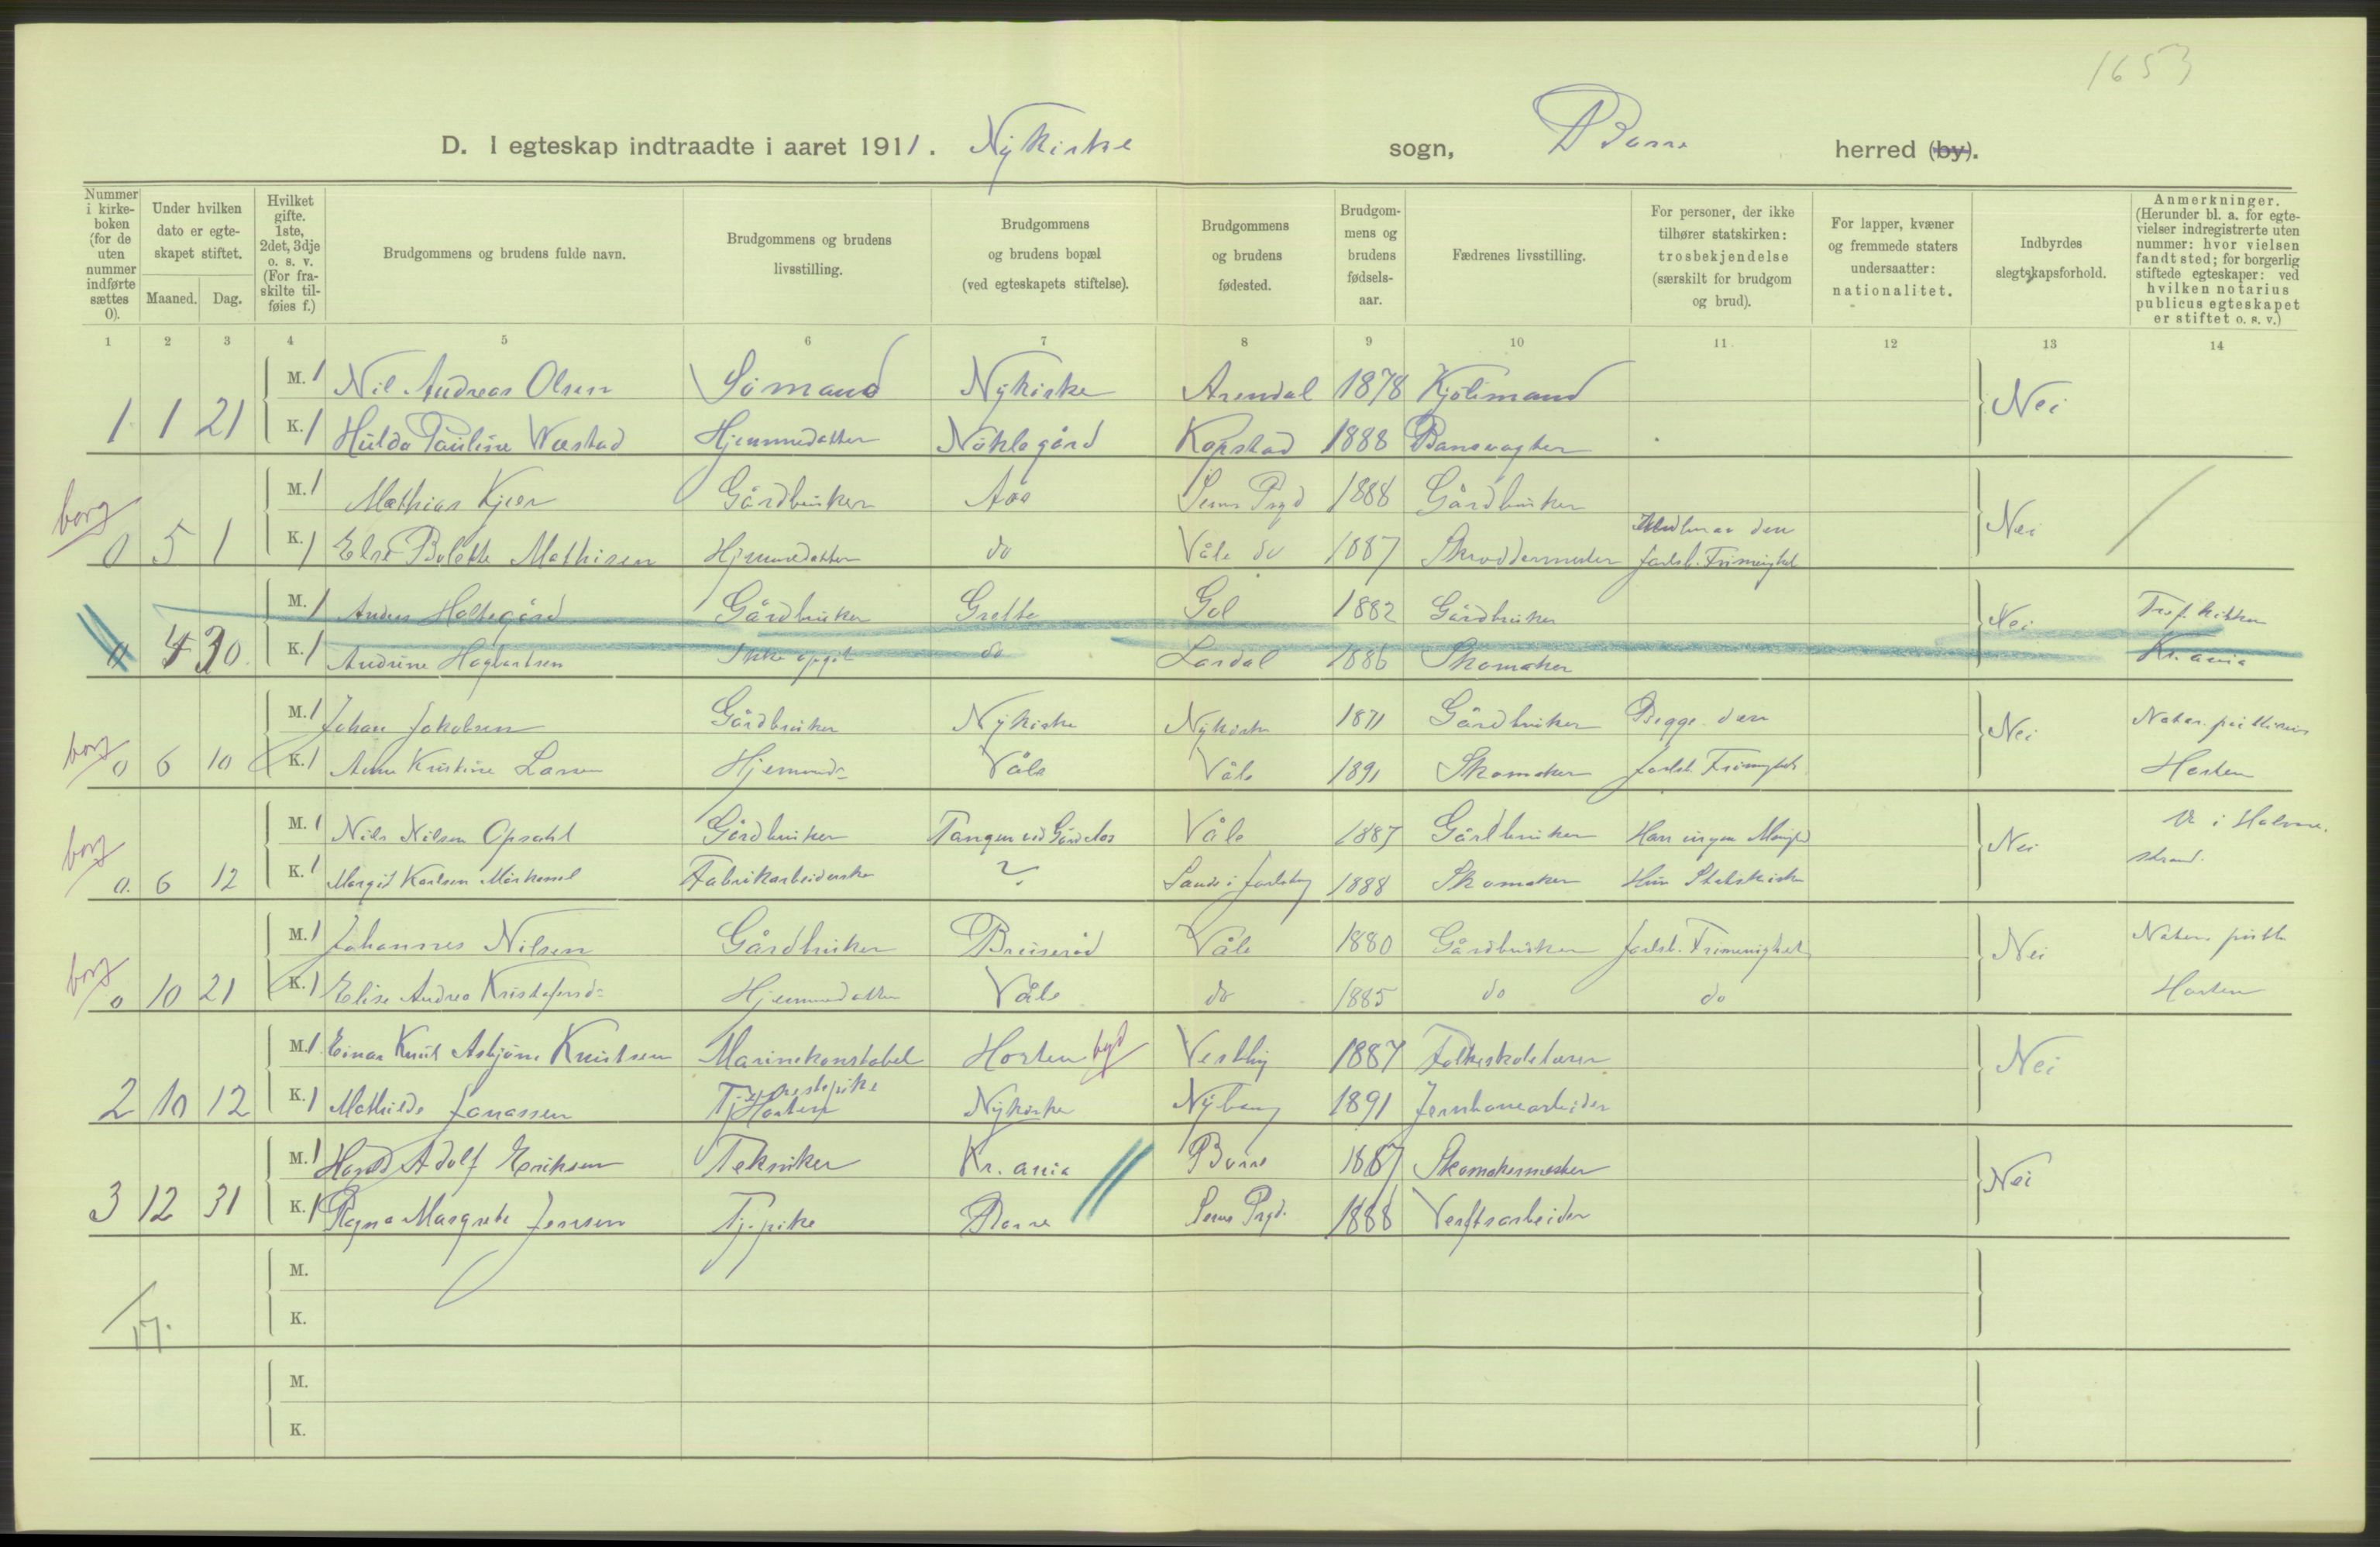 1653
D. I egteskap indtraadte i aaret 1911. Nykirke sogn, Borre herred (by).
Nummer i kirkeboken (for de uten nummer indførte sættes 0). Under hvilken dato er egteskapet stiftet. Maaned. Dag. Hvilket gifte. 1ste, 2det, 3dje o. s. v. (For fraskilte tilføies f.) Brudgommens og brudens fulde navn. Brudgommens og brudens livsstilling. Brudgommens og brudens bopæl (ved egteskapets stiftelse). Brudgommens og brudens fødested. Brudgommens og brudens fødselsaar. Fædrenes livsstilling. For personer, der ikke tilhører statskirken: trosbekjendelse (særskilt for brudgom og brud). For lapper, kvæner og fremmede staters undersaatter: nationalitet. Indbyrdes slegtskapsforhold. Anmerkninger. (Herunder bl. a. for egtevielser indregistrerte uten nummer: hvor vielsen fandt sted; for borgerlig stiftede egteskaper: ved hvilken notarius publicus egteskapet er stiftet o. s. v.)
1 2 3 4 5 6 7 8 9 10 11. 12 13 14
M. 1 Nil Andreas Olsen Sømand Nykirke Arendal 1878 Kjølimand
1 1 21 K. 1 Hulda Pauline Wæstad Hjemmedatter Nøklegård Kopstad 1888 Banevagter Nei
M. 1 Mathias Kjær Gårdbruker Aas Sems Prgd 1888 Gårdbruker
borg 0 5 1 K. 1 Else Bolette Mathisen Hjemmedatter do Våle do 1887 Skreddermester den Jarlsb. Frimenighet Nei
M. 1 Anders Holtegård Gårdbruker Grette Gol 1882 Gårdbruker Tref. kirken
0 4 30 K. 1 Andrine Hagbartsen Ikke opgit do Lardal 1886 Skomaker Nei Kr.ania
M. 1 Johan Jakobsen Gårdbruker Nykirke Nykirke 1871 Gårdbruker Begge den Notar. publicus
borg 0 6 10 K. 1 Anna Kristine Larsen Hjemmed- Våle Våle 1891 Skomaker Jarlsb. Frimenighet Nei Horten
M. 1 Nils Nilsen Opsahl Gårdbruker Tangen ved Gårdbruker Våle 1887 Gårdbruker Han ingen Menighed V. i Holme-
borg 0. 6 12 K. 1 Margit Karlsen Fabrikarbeiderske ? Sande i Jarlsberg 1888 Skomaker Hun Statskirke Nei strand.
M. 1 Johannes Nilsen Gårdbruker Bruserød Våle 1880 Gårdbruker Jarlsb. Frimenighet Notar. publ.
borg 0 10 21 K. 1 Elise Andrea Kristofersd- Hjemmedatter Våle do 1885 do do Nei Horten
M. 1 Einar Knut Asbjørn Knutsen Marinekonstabel Horten byd Vestby 1887 Folkeskolelærer
2 10 12 K. 1 Mathilde Jonassen Tjenestepike Horten Nykirke Nyborg 1891 Jernbanearbeider Nei
M. 1 Harald Adolf Eriksen Tekniker Kr.ania Borre 1887 Skomakermester
3 12 31 K. 1 Ragna Margrete Jensen Tj.pike Borre Sems Prgd. 1888 Verftsarbeider Nei
M.
17. K.
M.
K.